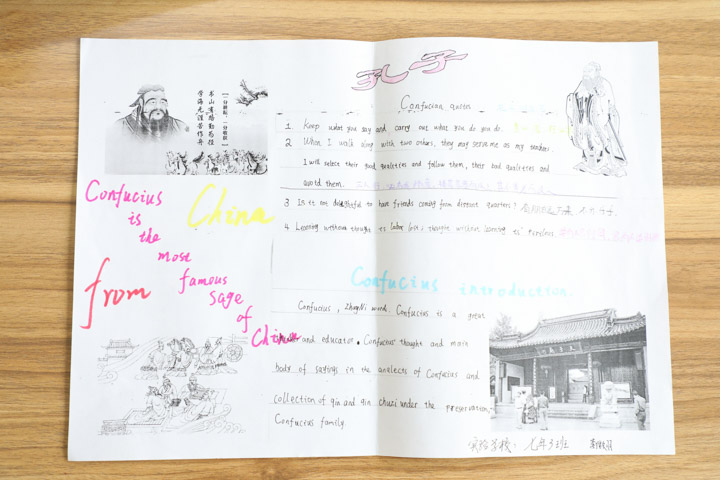 孔子
书山有路勤为径
学海无涯苦作舟
Confucian quotes
1 Keep what you say and carry out what you do you do.
2 When I walk along with two others, they may serve me as my teachers.
I will select their good qualities and follow them, their bad qualities and
avoid them.
3 Is it not delightful to have friends coming from distant quarters? 有朋自远方来
4 Learning without thought is labor lost; thought without learning is perilous.
Confucius
is
the
most
famous
sage
of
China
China
from
Confucius introduction.
Confucius, ZhongNi word. Confucius is a great
and educator. Confucius' thought and main
body of sayings in the analects of Confucius and
collection of qin and qin chuzi under the preservation,
Confucius family.
实验学校: 七年3班